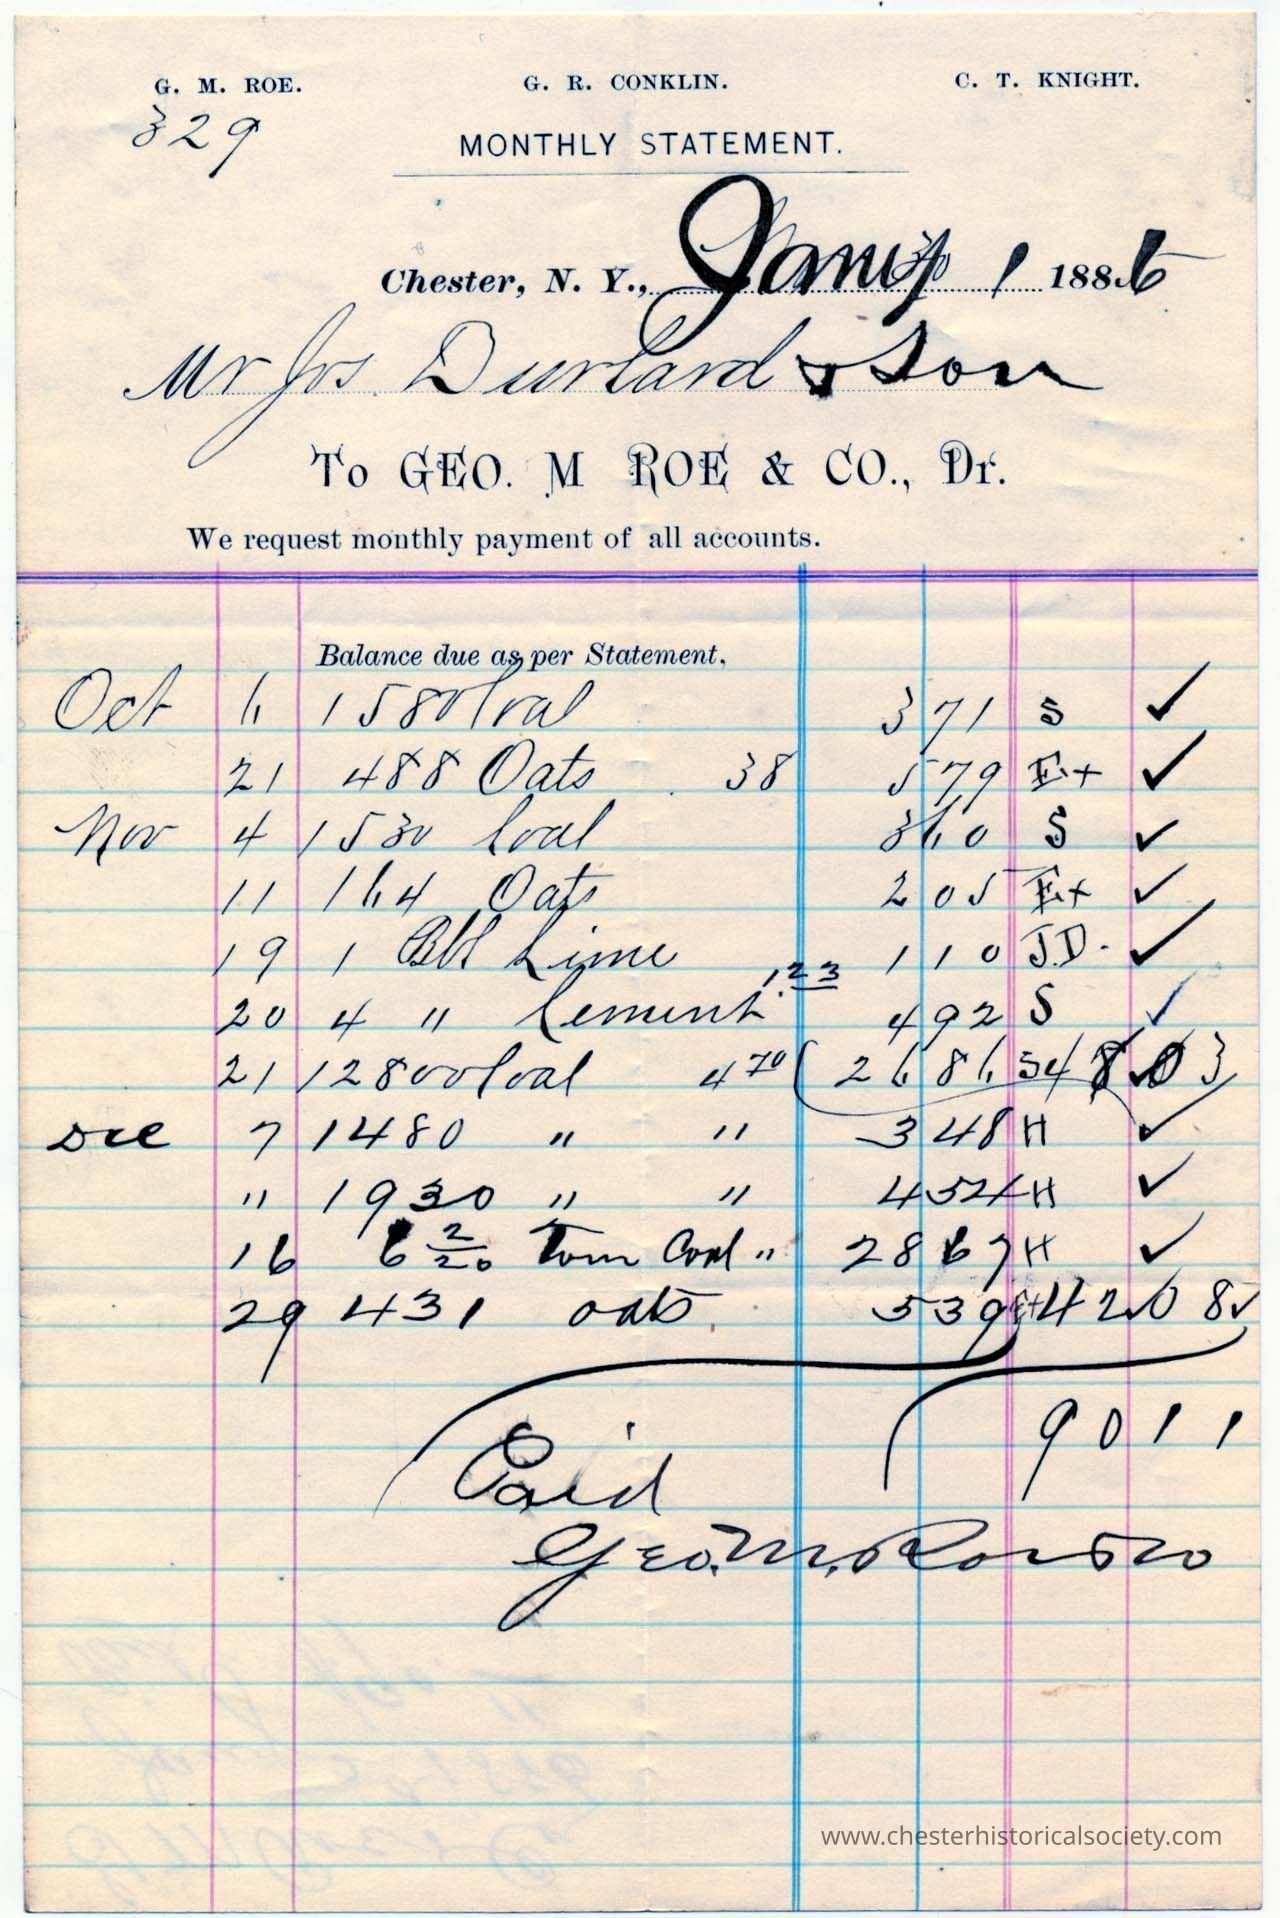 G. M. ROE. G. R. CONKLIN. C. T. KNIGHT.
329
MONTHLY STATEMENT.
Chester, N. Y., Jany 1 1886
Mr Jos. Durland & Son
To GEO. M ROE & CO., Dr.
We request monthly payment of all accounts.
Balance due as per Statement,
Oct 6 1580 Coal 3 71 S ✓
21 488 Oats 38 5 79 Ex ✓
Nov 4 1530 Coal 3 60 S ✓
11 164 Oats 2 05 Ex ✓
19 1 Bbl Lime 1 10 J.D. ✓
20 4 " Cement 1.23 4 92 S ✓
21 12800 Coal 4 70 26 86 34 8 03
Dec 7 1480 " " 3 48 H ✓
" 1930 " " 4 54 H ✓
16 6 2/20 Tom Coal " 28 67 H ✓
29 431 oats 5 39 Ex 42 08 ✓
90 11
Paid
Geo. M. Roe & Co
www.chesterhistoricalsociety.com